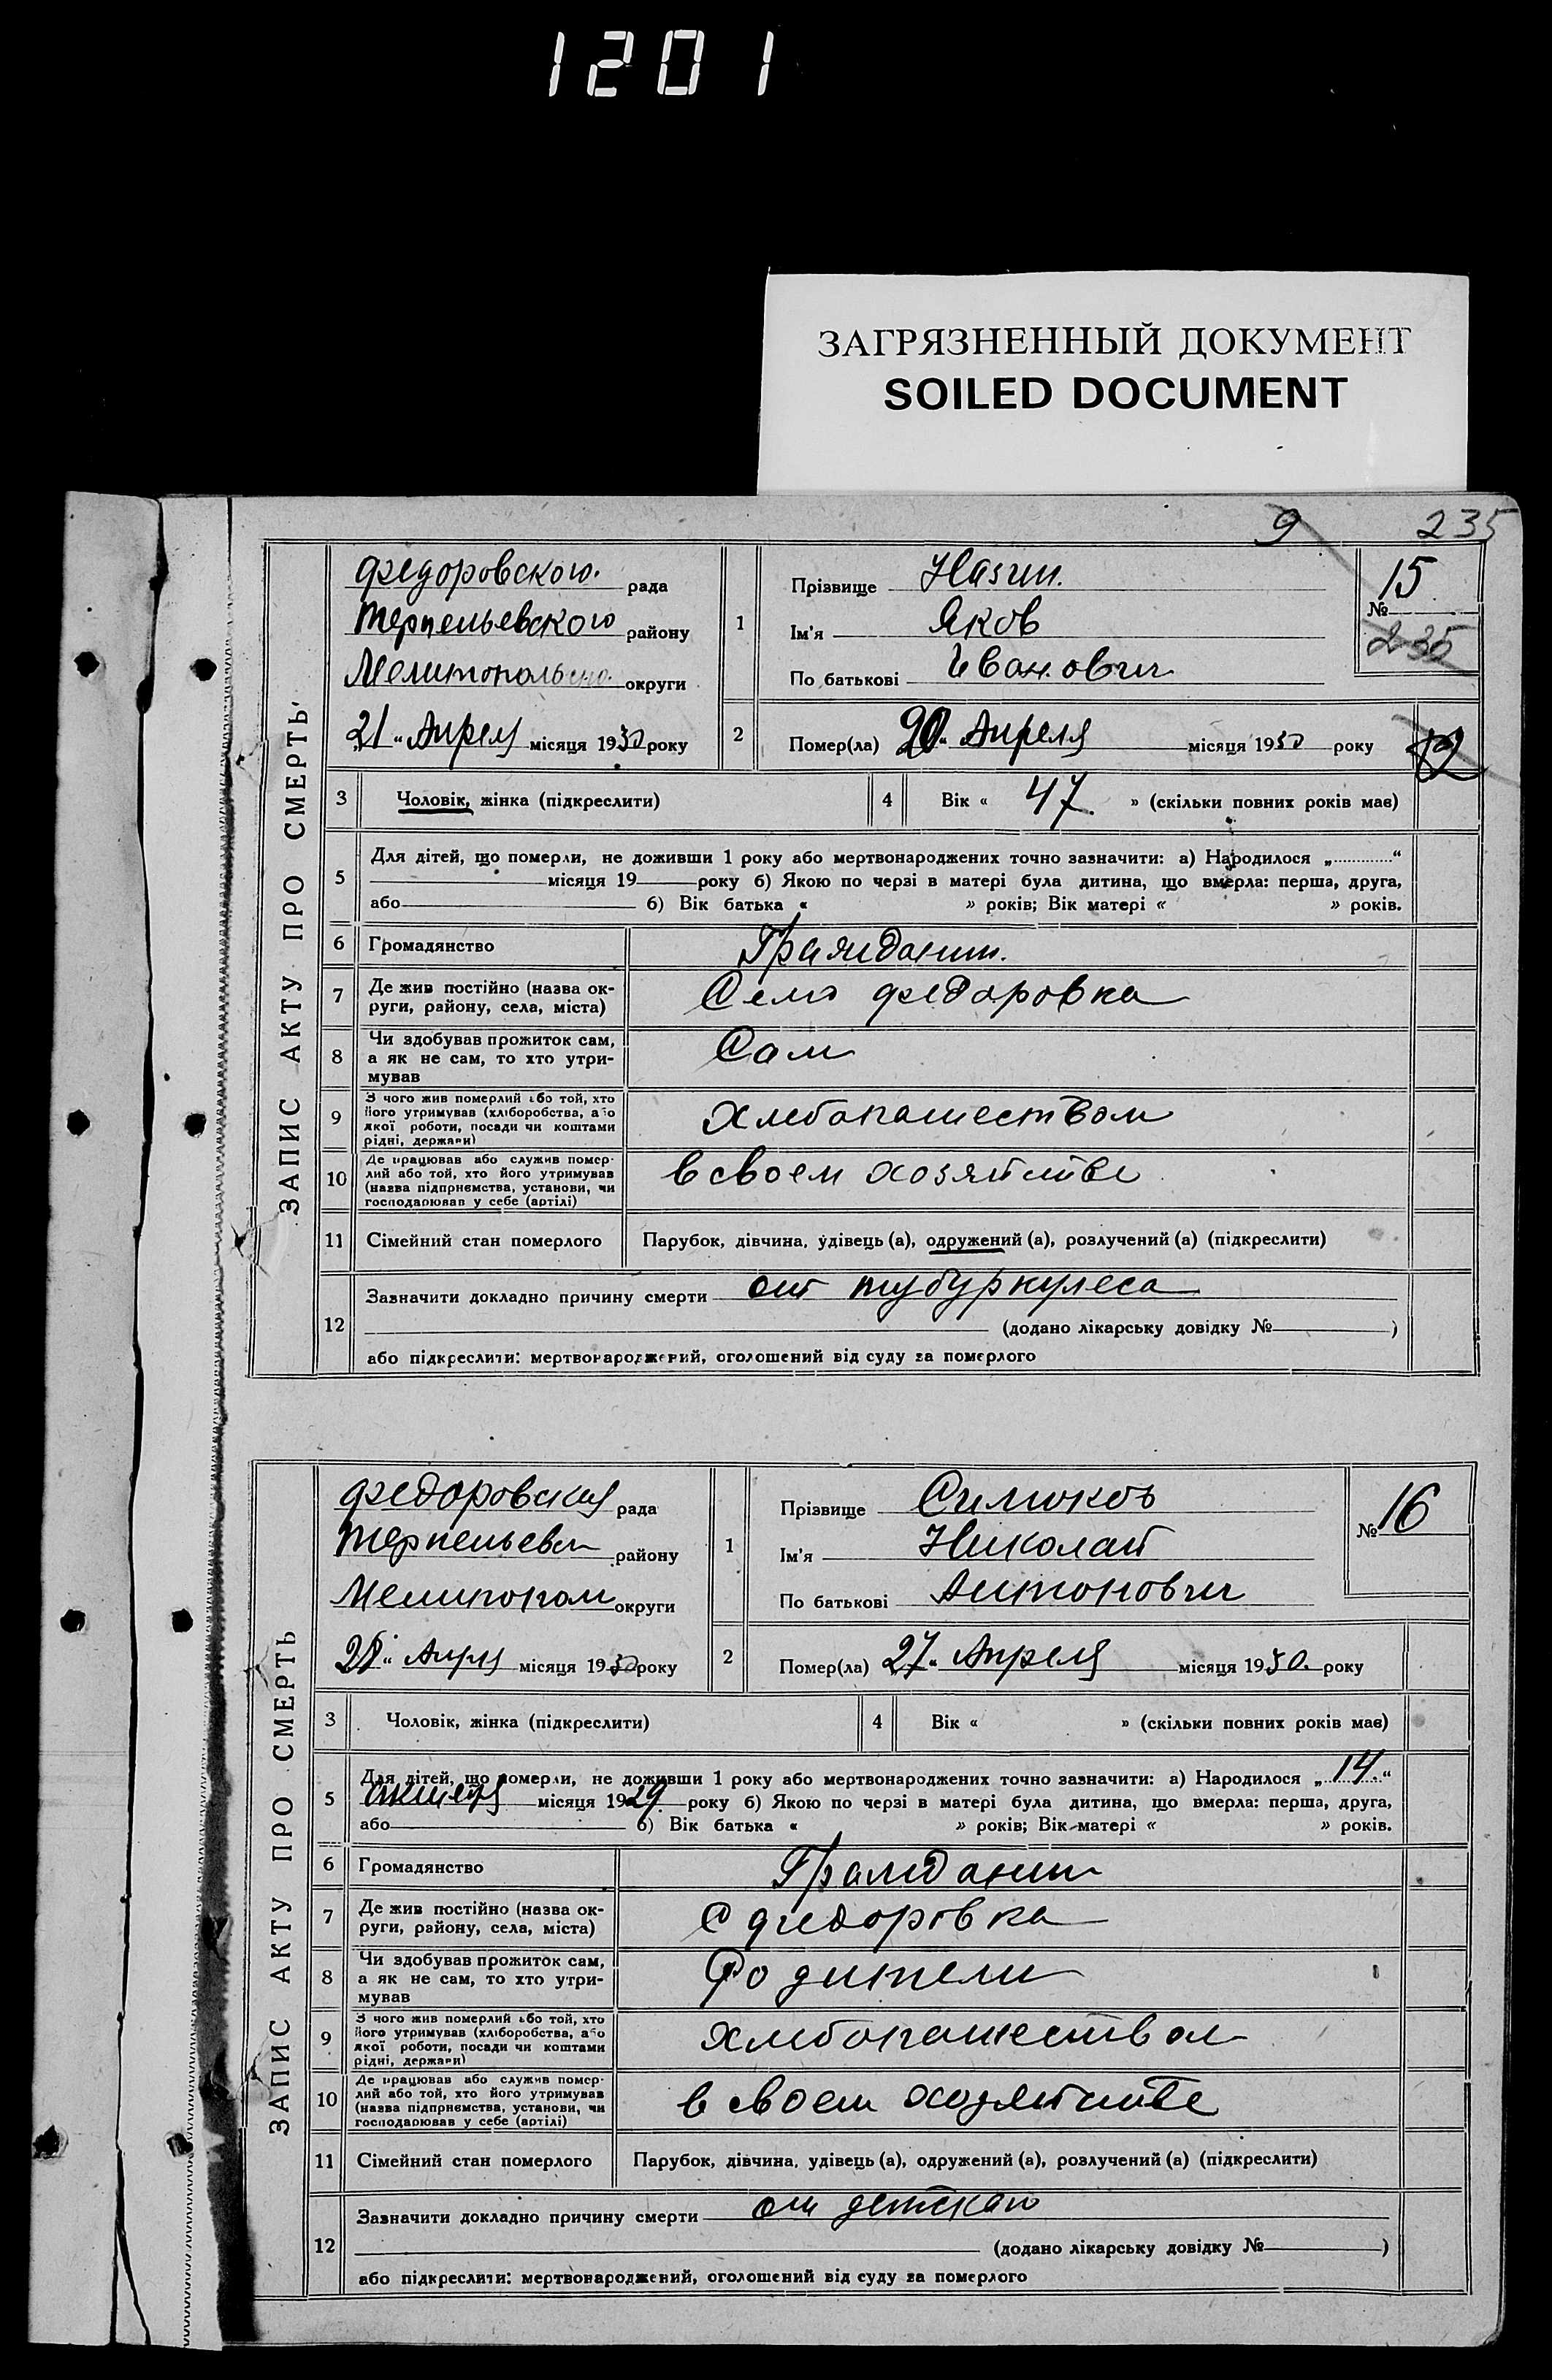 1201
ЗАГРЯЗНЕННЫЙ ДОКУМЕНТ
SOILED DOCUMENT
9 235
ЗАПИС АКТУ ПРО СМЕРТЬ
Федоровского рада
Терпельевского району
Мелитопольско. округи
„21“ Апреля місяця 1930 року
1
Прізвище Назин.
Ім'я Яков
По батькові Иванович
№ 15
235
2 Помер(ла) 20“ Апреля місяця 1930 року
3 Чоловік, жінка (підкреслити)
4 Вік « 47 » (скільки повних років має)
5 Для дітей, що померли, не доживши 1 року або мертвонароджених точно зазначити: а) Народилося „ “
місяця 19 року б) Якою по черзі в матері була дитина, що вмерла: перша, друга,
або б) Вік батька « » років; Вік матері « » років.
6 Громадянство Гражданин.
7 Де жив постійно (назва ок-
руги, району, села, міста) Село Федоровка
8 Чи здобував прожиток сам,
а як не сам, то хто утри-
мував Сам
9 З чого жив померлий або той, хто
його утримував (хліборобства, або
якої роботи, посади чи коштами
рідні, держави) Хлебопашеством
10 Де працював або служив помер-
лий або той, хто його утримував
(назва підприємства, установи, чи
господарював у себе (артілі) в своем хозяйстве
11 Сімейний стан померлого Парубок, дівчина, удівець (а), одружений (а), розлучений (а) (підкреслити)
12 Зазначити докладно причину смерти от тубуркулеса
(додано лікарську довідку № )
або підкреслити: мертвонароджений, оголошений від суду за померлого
ЗАПИС АКТУ ПРО СМЕРТЬ
Федоровская рада
Терпельевск району
Мелитопол округи
28“ Апреля місяця 1930 року
1
Прізвище Силюков
Ім'я Николай
По батькові Антонович
№ 16
2 Помер(ла) 27“ Апреля місяця 1930. року
3 Чоловік, жінка (підкреслити)
4 Вік « » (скільки повних років має)
5 Для дітей, що померли, не доживши 1 року або мертвонароджених точно зазначити: а) Народилося „ 14 “
місяця 1929 року б) Якою по черзі в матері була дитина, що вмерла: перша, друга,
або б) Вік батька « » років; Вік матері « » років.
6 Громадянство Гражданин
7 Де жив постійно (назва ок-
руги, району, села, міста) С Федоровка
8 Чи здобував прожиток сам,
а як не сам, то хто утри-
мував Родители
9 З чого жив померлий або той, хто
його утримував (хліборобства, або
якої роботи, посади чи коштами
рідні, держави) Хлебопашеством
10 Де працював або служив помер-
лий або той, хто його утримував
(назва підприємства, установи, чи
господарював у себе (артілі) в своем хозяйстве
11 Сімейний стан померлого Парубок, дівчина, удівець (а), одружений (а), розлучений (а) (підкреслити)
12 Зазначити докладно причину смерти от детскаго
(додано лікарську довідку № )
або підкреслити: мертвонароджений, оголошений від суду за померлого